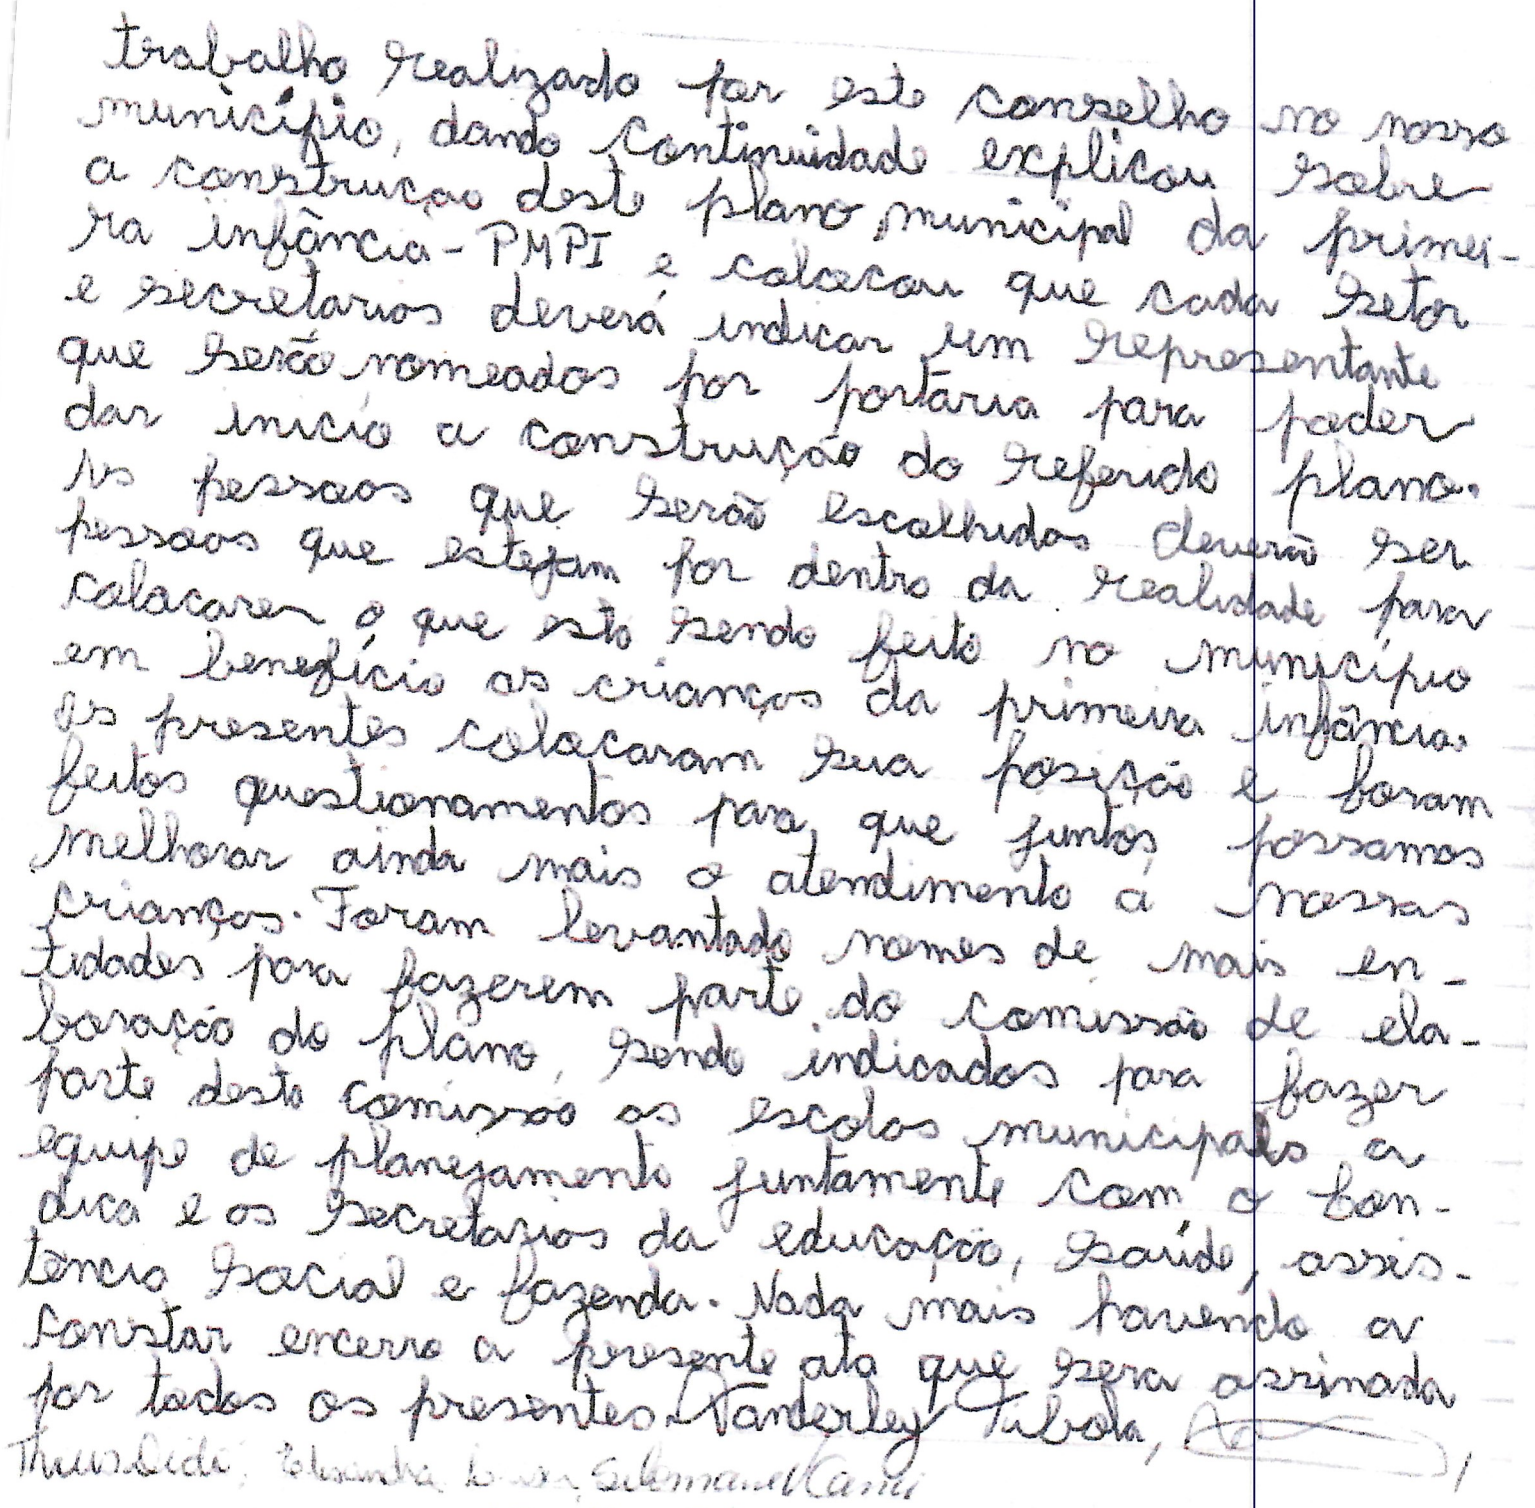 trabalho realizado por este conselho no nosso
município, dando continuidade explicou sobre
a construção deste plano municipal da primei-
ra infância - PMPI e colocou que cada setor
e secretarios deverá indicar um representante
que serão nomeados por portaria para poder
dar inicio a construção do referido plano.
As pessoas que serão escolhidas deverão ser
pessoas que estejam por dentro da realidade para
colocarem o que esta sendo feito no município
em benefício as crianças da primeira infância.
Os presentes colocaram sua posição e foram
feitos questionamentos para que juntos possamos
melhorar ainda mais o atendimento a nossas
crianças. Foram levantado nomes de mais en-
tidades para fazerem parte da comissão de ela-
boração do plano, sendo indicados para fazer
parte desta comissão as escolas municipais a
equipe de planejamento juntamente com o Con-
dica e os secretarios da educação, saúde, assis-
tência social e fazenda. Nada mais havendo a
constar encerro a presente ata que sera assinada
por todos os presentes. Vanderley Tibola,